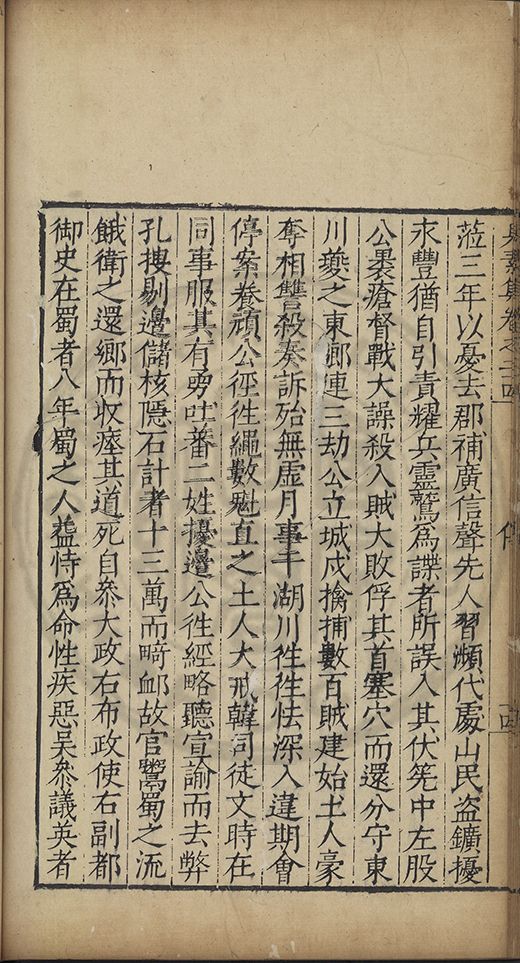 集卷之十四
蒞三年以憂去郡補廣信聲先人習瀕代處山民盜鑛擾
永豐猶自引責耀兵靈鷲爲諜者所誤入其伏筅中左股
公褁瘡督戰大譟殺入賊大敗俘其首塞穴而還分守東
川夔之東鄉連三劫公立城戍擒捕數百賊建始土人豪
奪相讐殺奏訴殆無虛月事干湖川徃徃怯深入違期會
停案眷頑公徑徃繩數魁直之土人大戒韓司徒文時在
同事服其有旁吐蕃二姓擾邊公徃經略聽宣諭而去弊
孔搜剔邊儲核隱石計者十三萬而畸䘏故官鬻蜀之流
餓衛之還鄉而收瘞其道死自叅大政右布政使右副都
御史在蜀者八年蜀之人益恃爲命性疾惡吳叅議英者